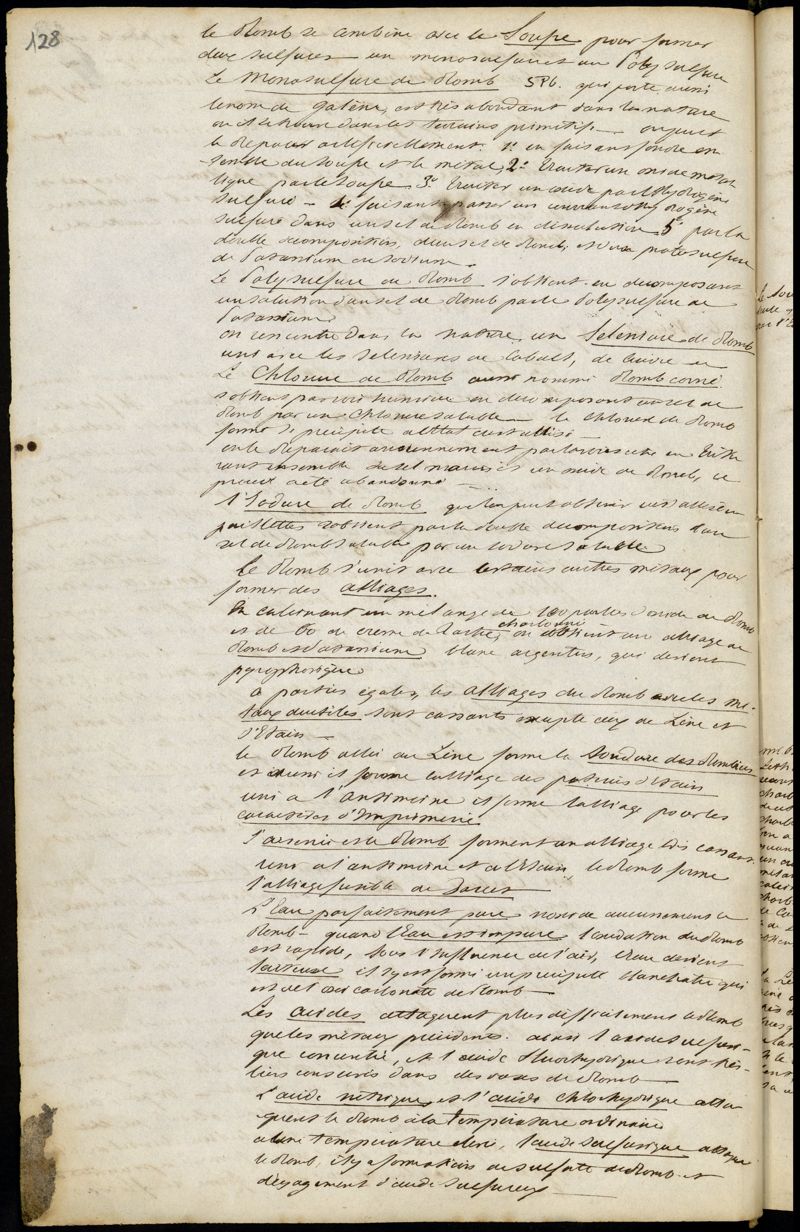 128
le Plomb se combine avec le Soufre pour former
deux sulfures un monosulfure et un Polysulfure
Le Monosulfure de Plomb SPb. qui porte aussi
le nom de galène, est très abondant dans la nature
on le trouve dans les terrains primitifs — on peut
le préparer artificiellement. 1° en faisant fondre en
-semble du soufre et le métal, 2° traiter un oxide métal
lique par le soufre 3° traiter un oxide par l'hydrogène
sulfuré — 4° faisant passer un courant d'hydrogène
sulfuré dans un sel de Plomb en dissolution 5° par la
double décomposition, d'un sel de Plomb, et d'un protosulfure
de Potassium ou sodium —
Le Polysulfure de Plomb s'obtient en décomposant
une solution d'un sel de Plomb par le Polysulfure de
Potassium
on rencontre dans la nature un Seleniure de Plomb
uni avec les seleniures de Cobalt, de cuivre
Le Chlorure de Plomb aussi nommé Plomb corné
s'obtient par voie humide en décomposant un sel de
Plomb par un Chlorure soluble — le chlorure de Plomb
formé se précipite à l'état cristallisé —
on le préparait anciennement par la voie sèche en tritu
rant ensemble du sel marin et un oxide de Plomb, ce
procédé a été abandonné —
l'Iodure de Plomb que l'on peut obtenir cristallisé en
paillettes s'obtient par la double décomposition d'un
sel de Plomb soluble par un iodure soluble
Le Plomb s'unit avec certains autres métaux pour
former des alliages.
En calcinant un mélange de 100 parties d'oxide de Plomb
et de 60 de crème de Tartre charbonné on obtient un alliage de
Plomb et Potassium blanc argentin, qui devient
pyrophorique
à parties égales, les alliages du Plomb avec les mé-
taux ductiles sont cassants excepté ceux de Zinc et
d'Etain —
le Plomb allié au Zinc forme la Soudure des Plombiers
et aussi il forme l'alliage des poteries d'étain
uni à l'antimoine il forme l'alliage pour les
caractères d'Imprimerie
l'arsenic et le Plomb forment un alliage très cassant
uni à l'antimoine et à l'étain, le Plomb forme
l'alliage fusible de Darcet
L'Eau parfaitement pure n'oxide aucunement le
Plomb — quand l'Eau est impure l'oxidation du Plomb
est rapide, sous l'influence de l'air, l'eau devient
laiteuse et il y est formé un précipité blanchâtre qui
est de l'oxi carbonate de Plomb —
Les acides attaquent plus difficilement le Plomb
que les métaux précédents. ainsi l'acide sulfuri-
que concentré, et l'acide fluorhydrique sont très-
bien conservés dans des vases de Plomb —
L'acide nitrique et l'acide chlorhydrique atta
quent le Plomb à la température ordinaire
à une température élevée, l'acide sulfurique attaque
le Plomb, il y a formation de sulfate de Plomb et
dégagement d'acide sulfureux —